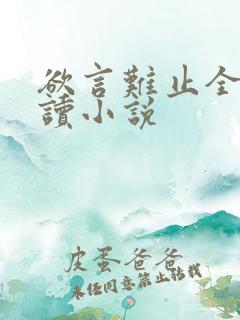 欲言難止全
讀小説
皮蛋爸爸
未经同意禁止转载